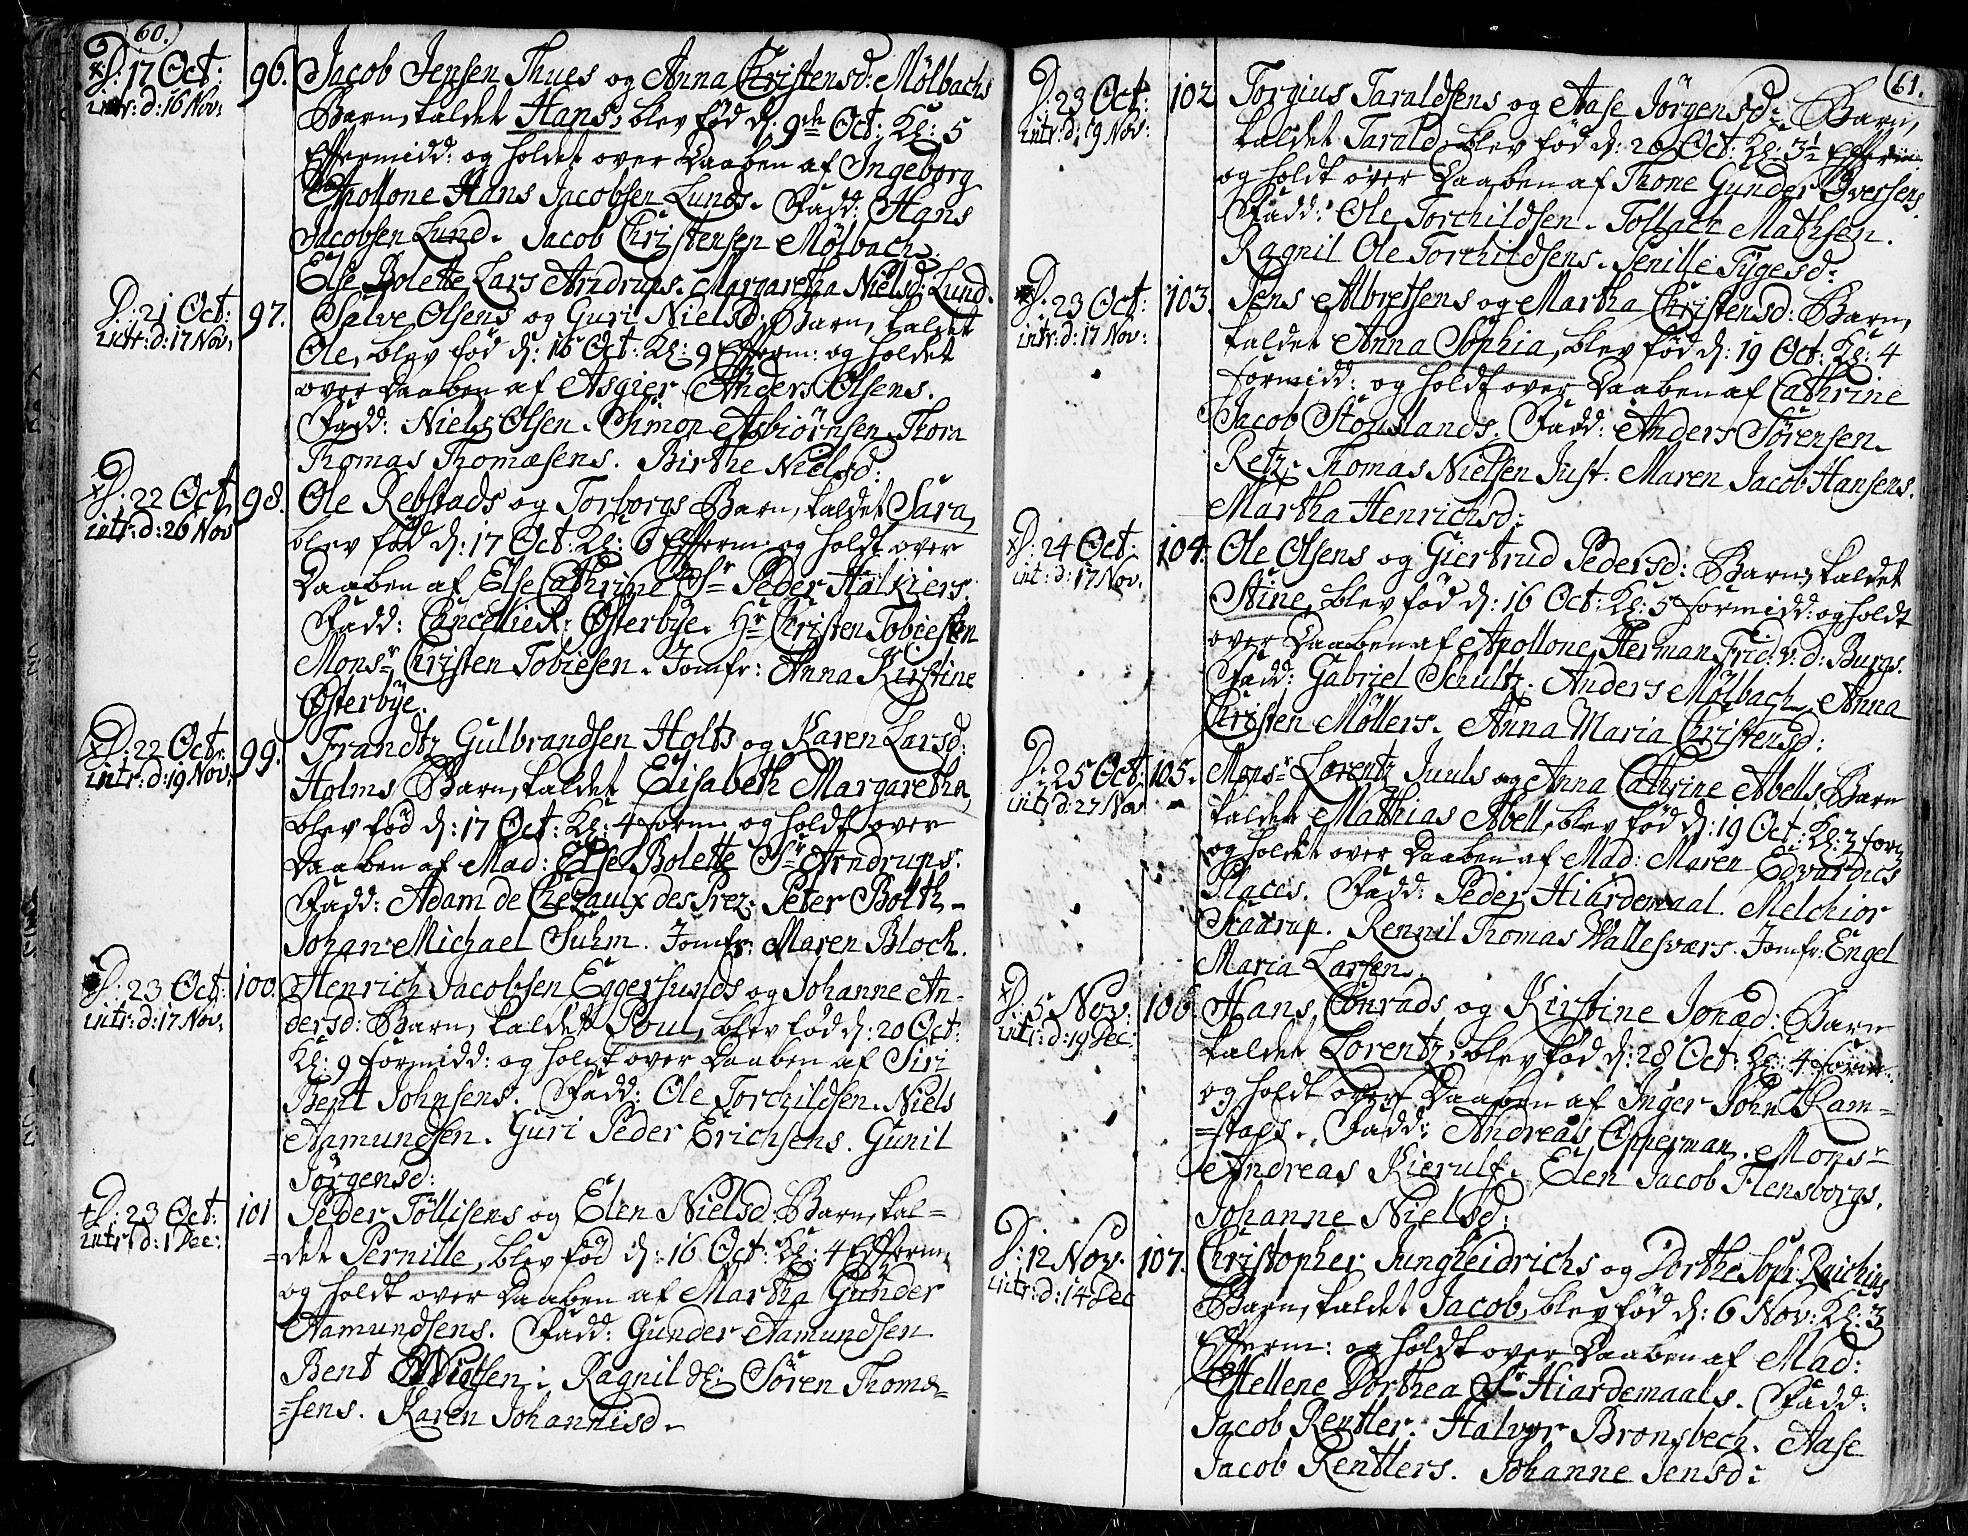 60.
D: 17 Oct: 96. Jacob Jensen Thues og Anna Christensd: Mølbachs
intr: d: 16 Nov: Barn, kaldet Hans, blev fød d: 9de Oct: Kl: 5
Efftermidd: og holdet over Daaben af Ingeborg
Apollone Hans Jacobsen Lunds. Fadd: Hans
Jacobsen Lund. Jacob Christensen Mølbach.
Else Bolette Lars Arndrups. Margaretha Nielsd: Lund.
D: 21 Oct: 97. Salve Olsens og Guri Nielsd: Barn, kaldet
intr: d: 17 Nov: Ole, blev fød d: 16 Oct: Kl: 9 Efferm: og holdet
over Daaben af Asgier Anders Olsens.
Fadd: Niels Olsen. Simon Asbiørnsen. Thora
Thomas Thomæsens. Birthe Nielsd:
D: 22 Oct: 98. Ole Rebstads og Torborgs Barn, kaldet Sara,
intr: d: 26 Nov blev fød d: 17 Oct: Kl: 6 Efferm: og holdt over
Daaben af Else Cathrine Sr Peder Halkiers.
Fadd: CancellieR: Østerbye. Hr Christen Tobiesen
Monsr Christen Tobiesen. Jomfr: Anna Kirstine
Østerbye.
D: 22 Oct: 99. Frandtz Gulbrandsen Holts og Karen Larsd:
intr: d: 19 Nov: Holms Barn, kaldet Elisabeth Margaretha,
blev fød d: 17 Oct: Kl: 4 form: og holdt over
Daaben af Mad: Else Bolette Sr Arndrups.
Fadd: Adam de Chezaulx des Prez. Peter Bolth.
Johan Michael Suhm. Jomfr: Maren Bloch.
D: 23 Oct: 100. Henrich Jacobsen Eggersunds og Johanne An-
intr: d: 17 Nov: dersd: Barn, kaldet Poul, blev fød d: 20 Oct:
Kl: 9 formidd: og holdt over Daaben af Siri
Bent Johnsens. Fadd: Ole Torchildsen. Niels
Aamundsen. Guri Peder Erichsens. Gunil
Jørgensd:
D: 23 Oct: 101 Peder Töllisens og Elen Nielsd: Barn, kal=
intr: d: 1 Dec: =det Pernille, blev fød d: 16 Oct: Kl: 4 Efferm:
og holdt over Daaben af Martha Gunder
Aamundsens. Fadd: Gunder Aamundsen
Bent Nielsen. Ragnil Søren Thomæ=
=sens. Karen Johannisd.
61.
D: 23 Oct: 102 Torgius Taraldsens og Aase Jörgensd: Barn,
intr: d: 19 Nov: kaldet Tarald, blev fød d: 20 Oct: Kl: 3½ Efferm:
og holdt over Daaben af Thone Gunder Iversens.
Fadd: Ole Torchildsen. Tollach Mathsen.
Ragnil Ole Torchildsens. Penille Tygesd:
D: 23 Oct: 103. Jens Albretsens og Martha Christensd: Barn,
intr: d: 17 Nov: kaldet Anna Sophia, blev fød d: 19 Oct: Kl: 4
formidd: og holdt over Daaben af Cathrine
Jacob Stouslands. Fadd: Anders Sørensen
Retz. Thomas Nielsen Just. Maren Jacob Hansens.
Martha Henrichsd:
D: 24 Oct: 104. Ole Olsens og Giertrud Pedersd: Barn, kaldet
int: d: 17 Nov. Stine, blev fød d: 16 Oct: Kl: 5 formidd: og holdt
over Daaben af Apollone Herman Frid: v: d: Burgs.
Fadd: Gabriel Schultz. Anders Mölbach. Anna
Christen Möllers. Anna Maria Christensd:
D: 25 Oct: 105. Monsr Lorentz Juuls og Anna Cathrine Abells Barn
intr: d: 27 Nov kaldet Mathias Abell, blev fød d: 19 Oct: Kl: 3 form
og holdet over Daaben af Mad: Maren Edvardies
Places. Fadd: Peder Hiardemaal. Melchior
Staarup. Rennil Thomas Wallesværs. Jomfr: Engel
Maria Larsen.
D: 5 Nov: 106. Hans Conrads og Kirstine Jonæd: Barn
intr: d: 19 Dec: kaldet Lorentz, blev fød d: 28 Oct: Kl: 4 form:
og holdt over Daaben af Inger John Ram=
=stads. Fadd: Andreas Opperman. Monsr
Andreas Kierulf. Elen Jacob Flensborgs.
Johanne Nielsd:
D: 12 Nov: 107. Christopher Jungheidrichs og Dorthe Soph: Raichius
intr: d: 14 Dec Barn, kaldet Jacob, blev fød d: 6 Nov: Kl: 3
Efferm: og holdt over Daaben af Mad:
Hellene Dorthea Sr Hiardemaals. Fadd:
Jacob Rentler. Halvor Bronsbech. Aase
Jacob Rentlers. Johanne Jensd: